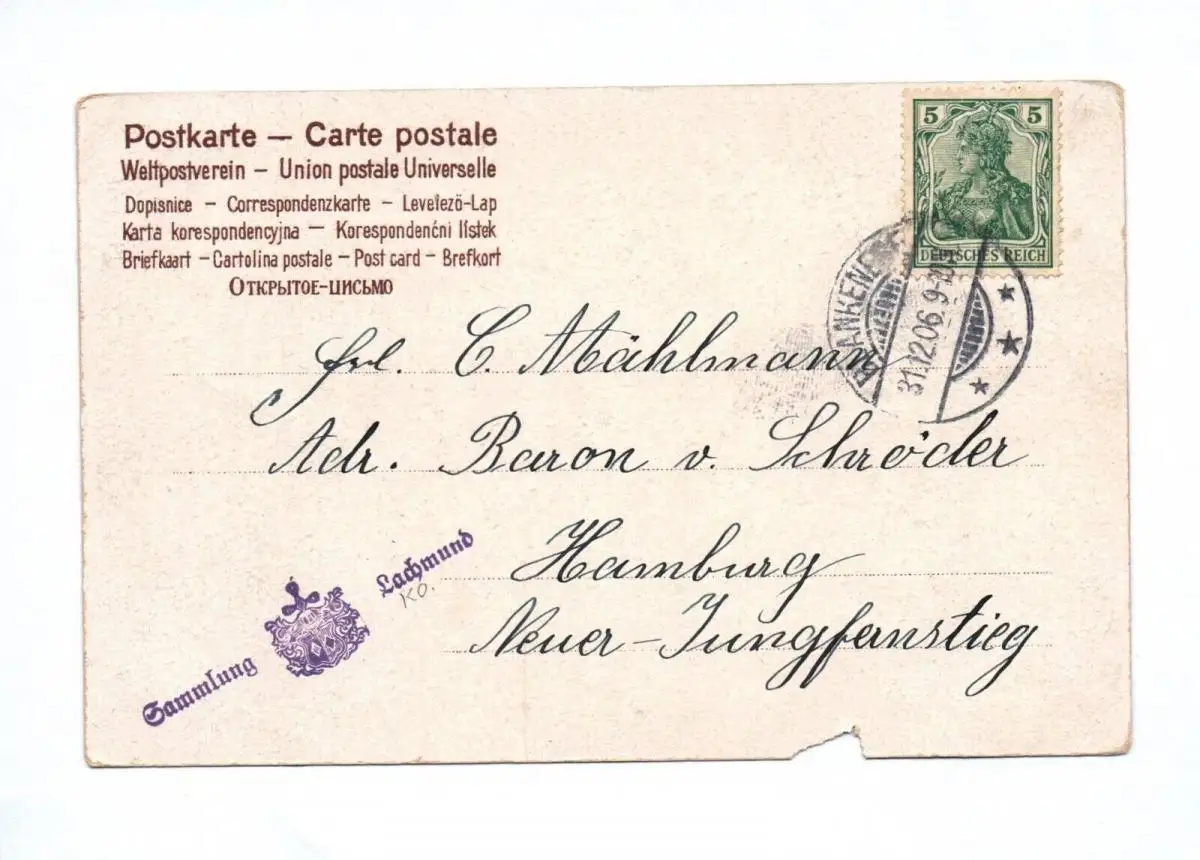 Postkarte — Carte postale
Weltpostverein – Union postale Universelle
Dopisnice – Correspondenzkarte – Levelező-Lap
Karta korespondencyjna – Korespondenční lístek
Briefkaart – Cartolina postale – Post card – Brefkort
Открытое-письмо
5 5
DEUTSCHES REICH
31.12.06. 9-10
Frl. C. Mählmann
Adr. Baron v. Schröder
Hamburg
Neuer-Jungfernstieg
Sammlung Lachmund
KO.